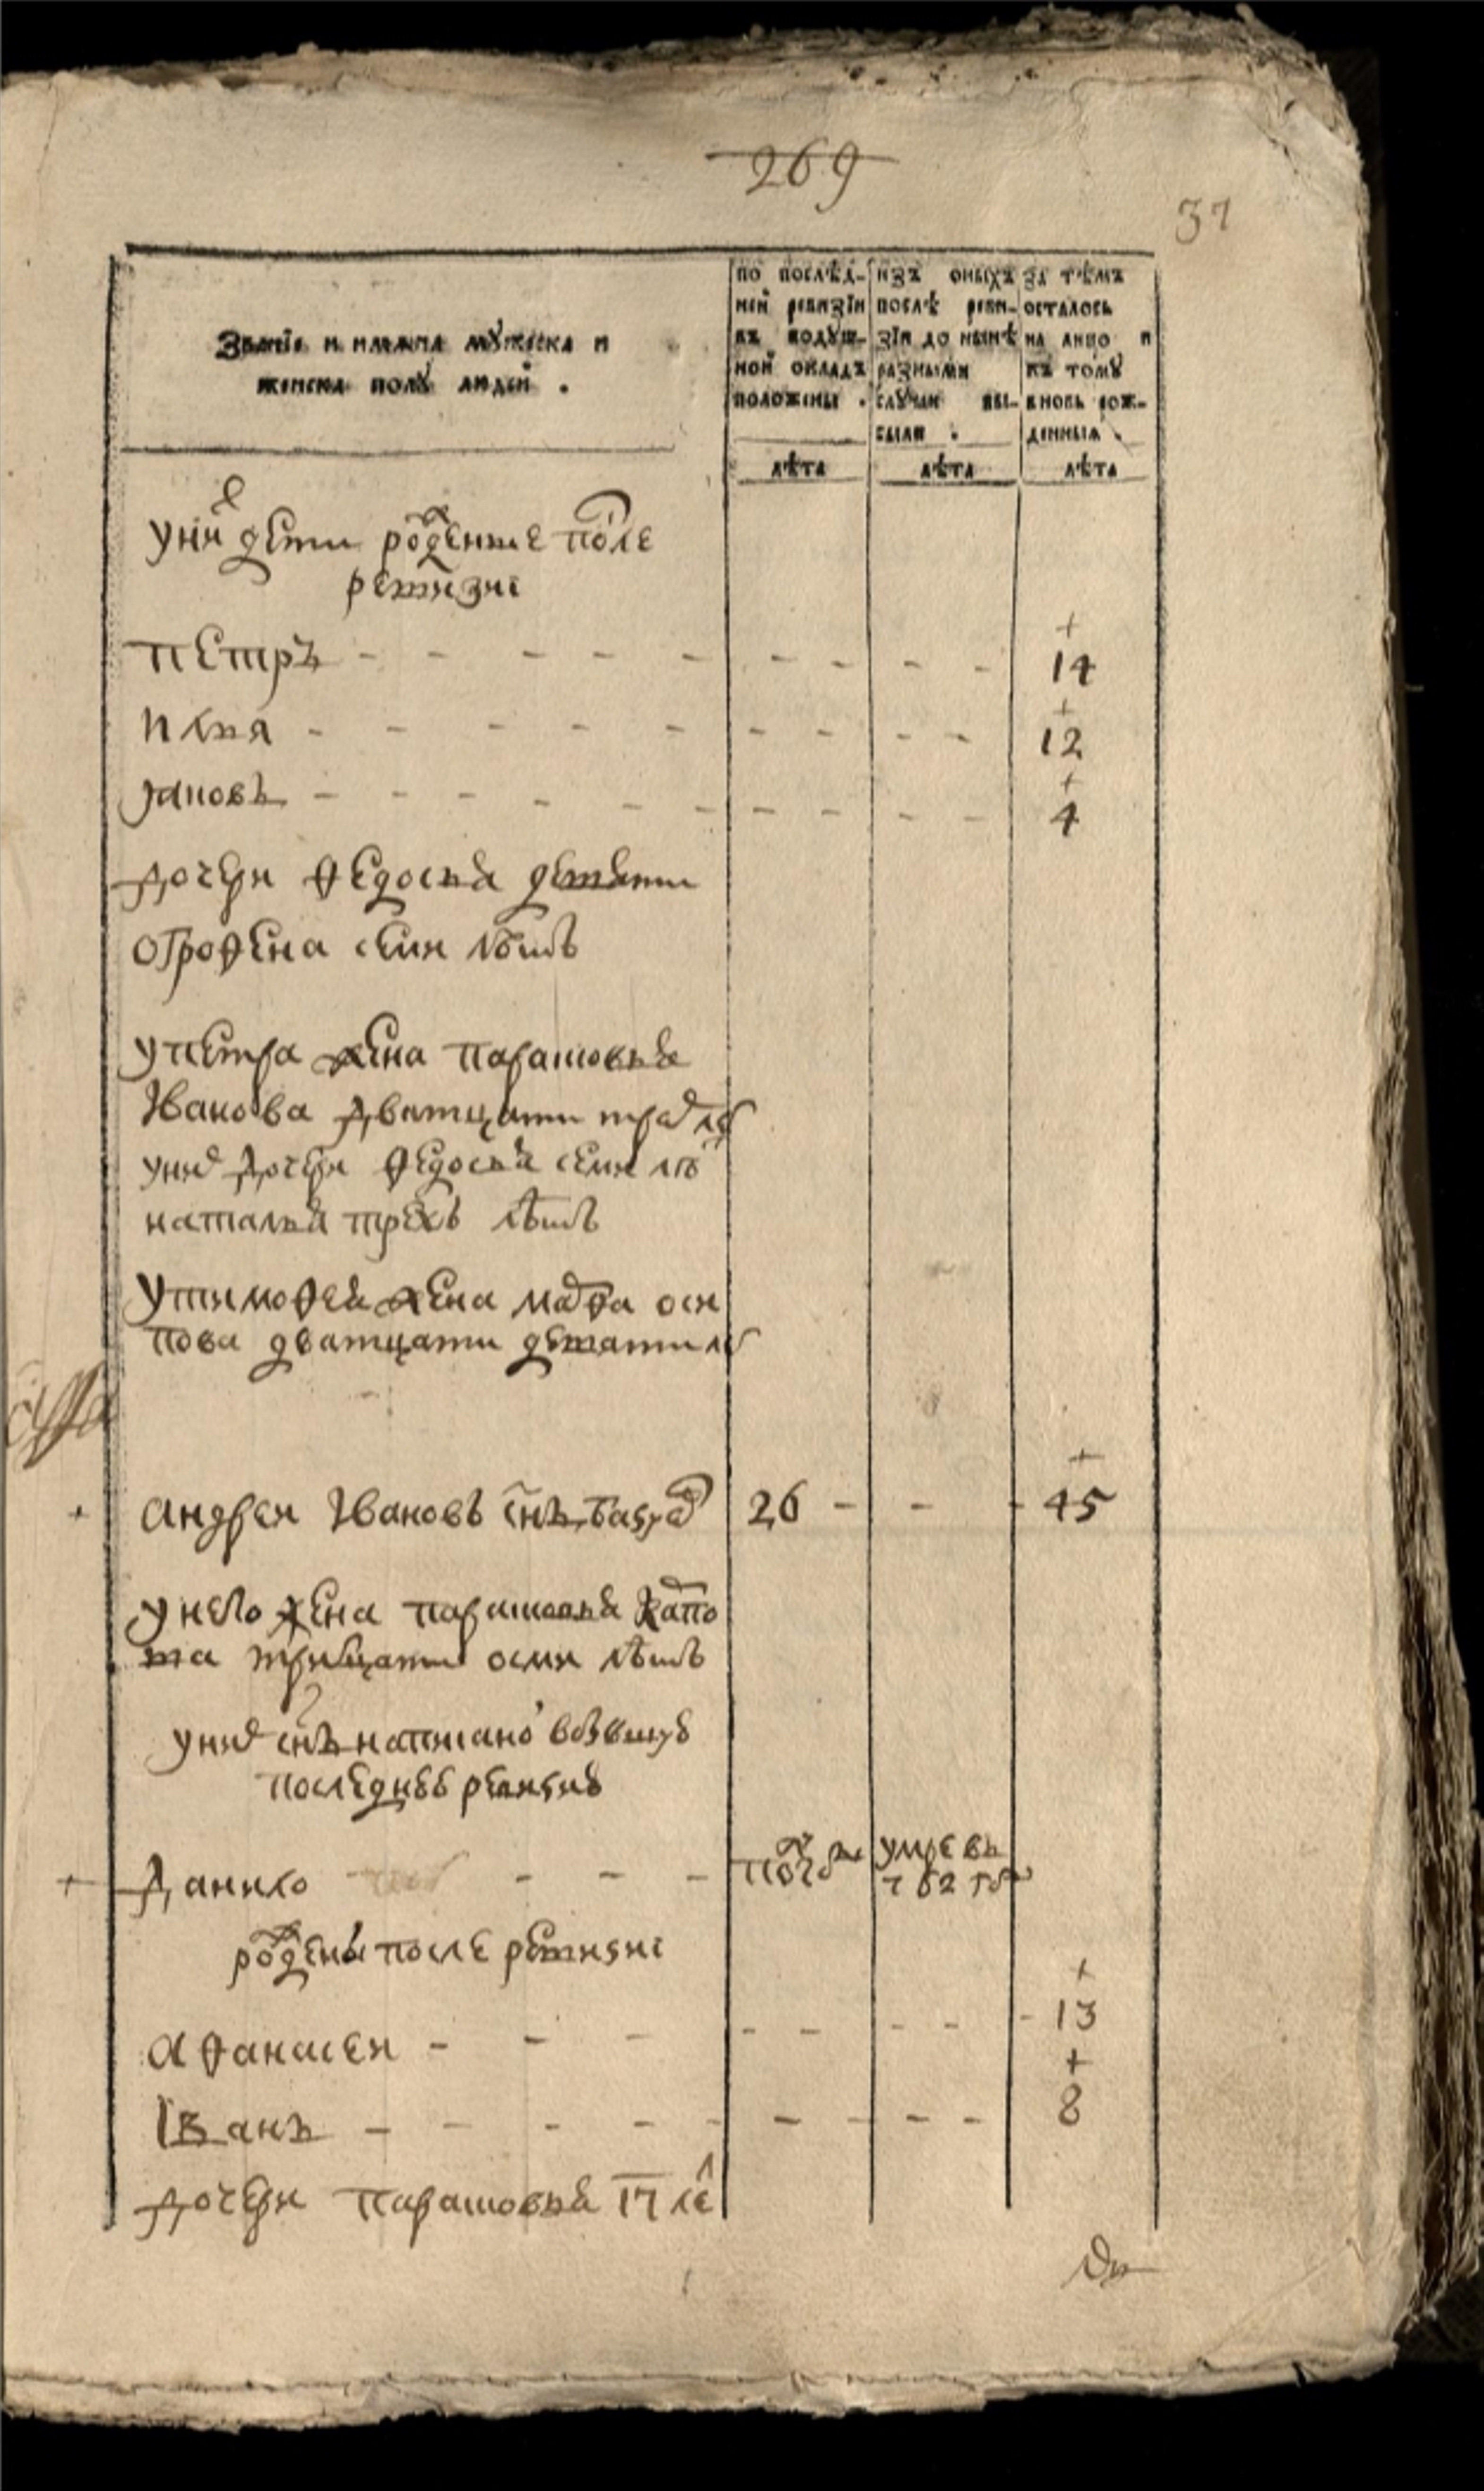 269
37
Званїе и имѧна мꙋжеска и
женска полꙋ людей .
по послѣд-
ней ревизїи
въ подꙋш-
ной окладъ
положены .
изъ оныхъ
послѣ реви-
зїи до нынѣ
разными
слꙋчаи вы-
были .
за тѣмъ
осталось
на лицо и
къ томꙋ
вновь рож-
денныѧ .
лѣта
лѣта
лѣта
уних дети роженые после
ревизиі
петръ - - - - - - - - - 14
илья - - - - - - - - - 12
яковъ - - - - - - - - - 4
дочери федосья девяти
офрофена семи летъ
упетра жена парасковья
Іванова дватцати трех ле
уних дочери федосья семи ле
наталья трехъ летъ
утимофея жена марфа оси
пова дватцати девяти ле
андреи Івановъ снъ 26 - - - 45
унего жена парасковья
тритцати осми летъ
уних снъ написано вбывшую
последнею ревизию
данило - - - умре въ
рожены после ревизиі
афанасеи - - - - - - - - 13
Іванъ - - - - - - - - - 8
дочери парасковья 17 ле